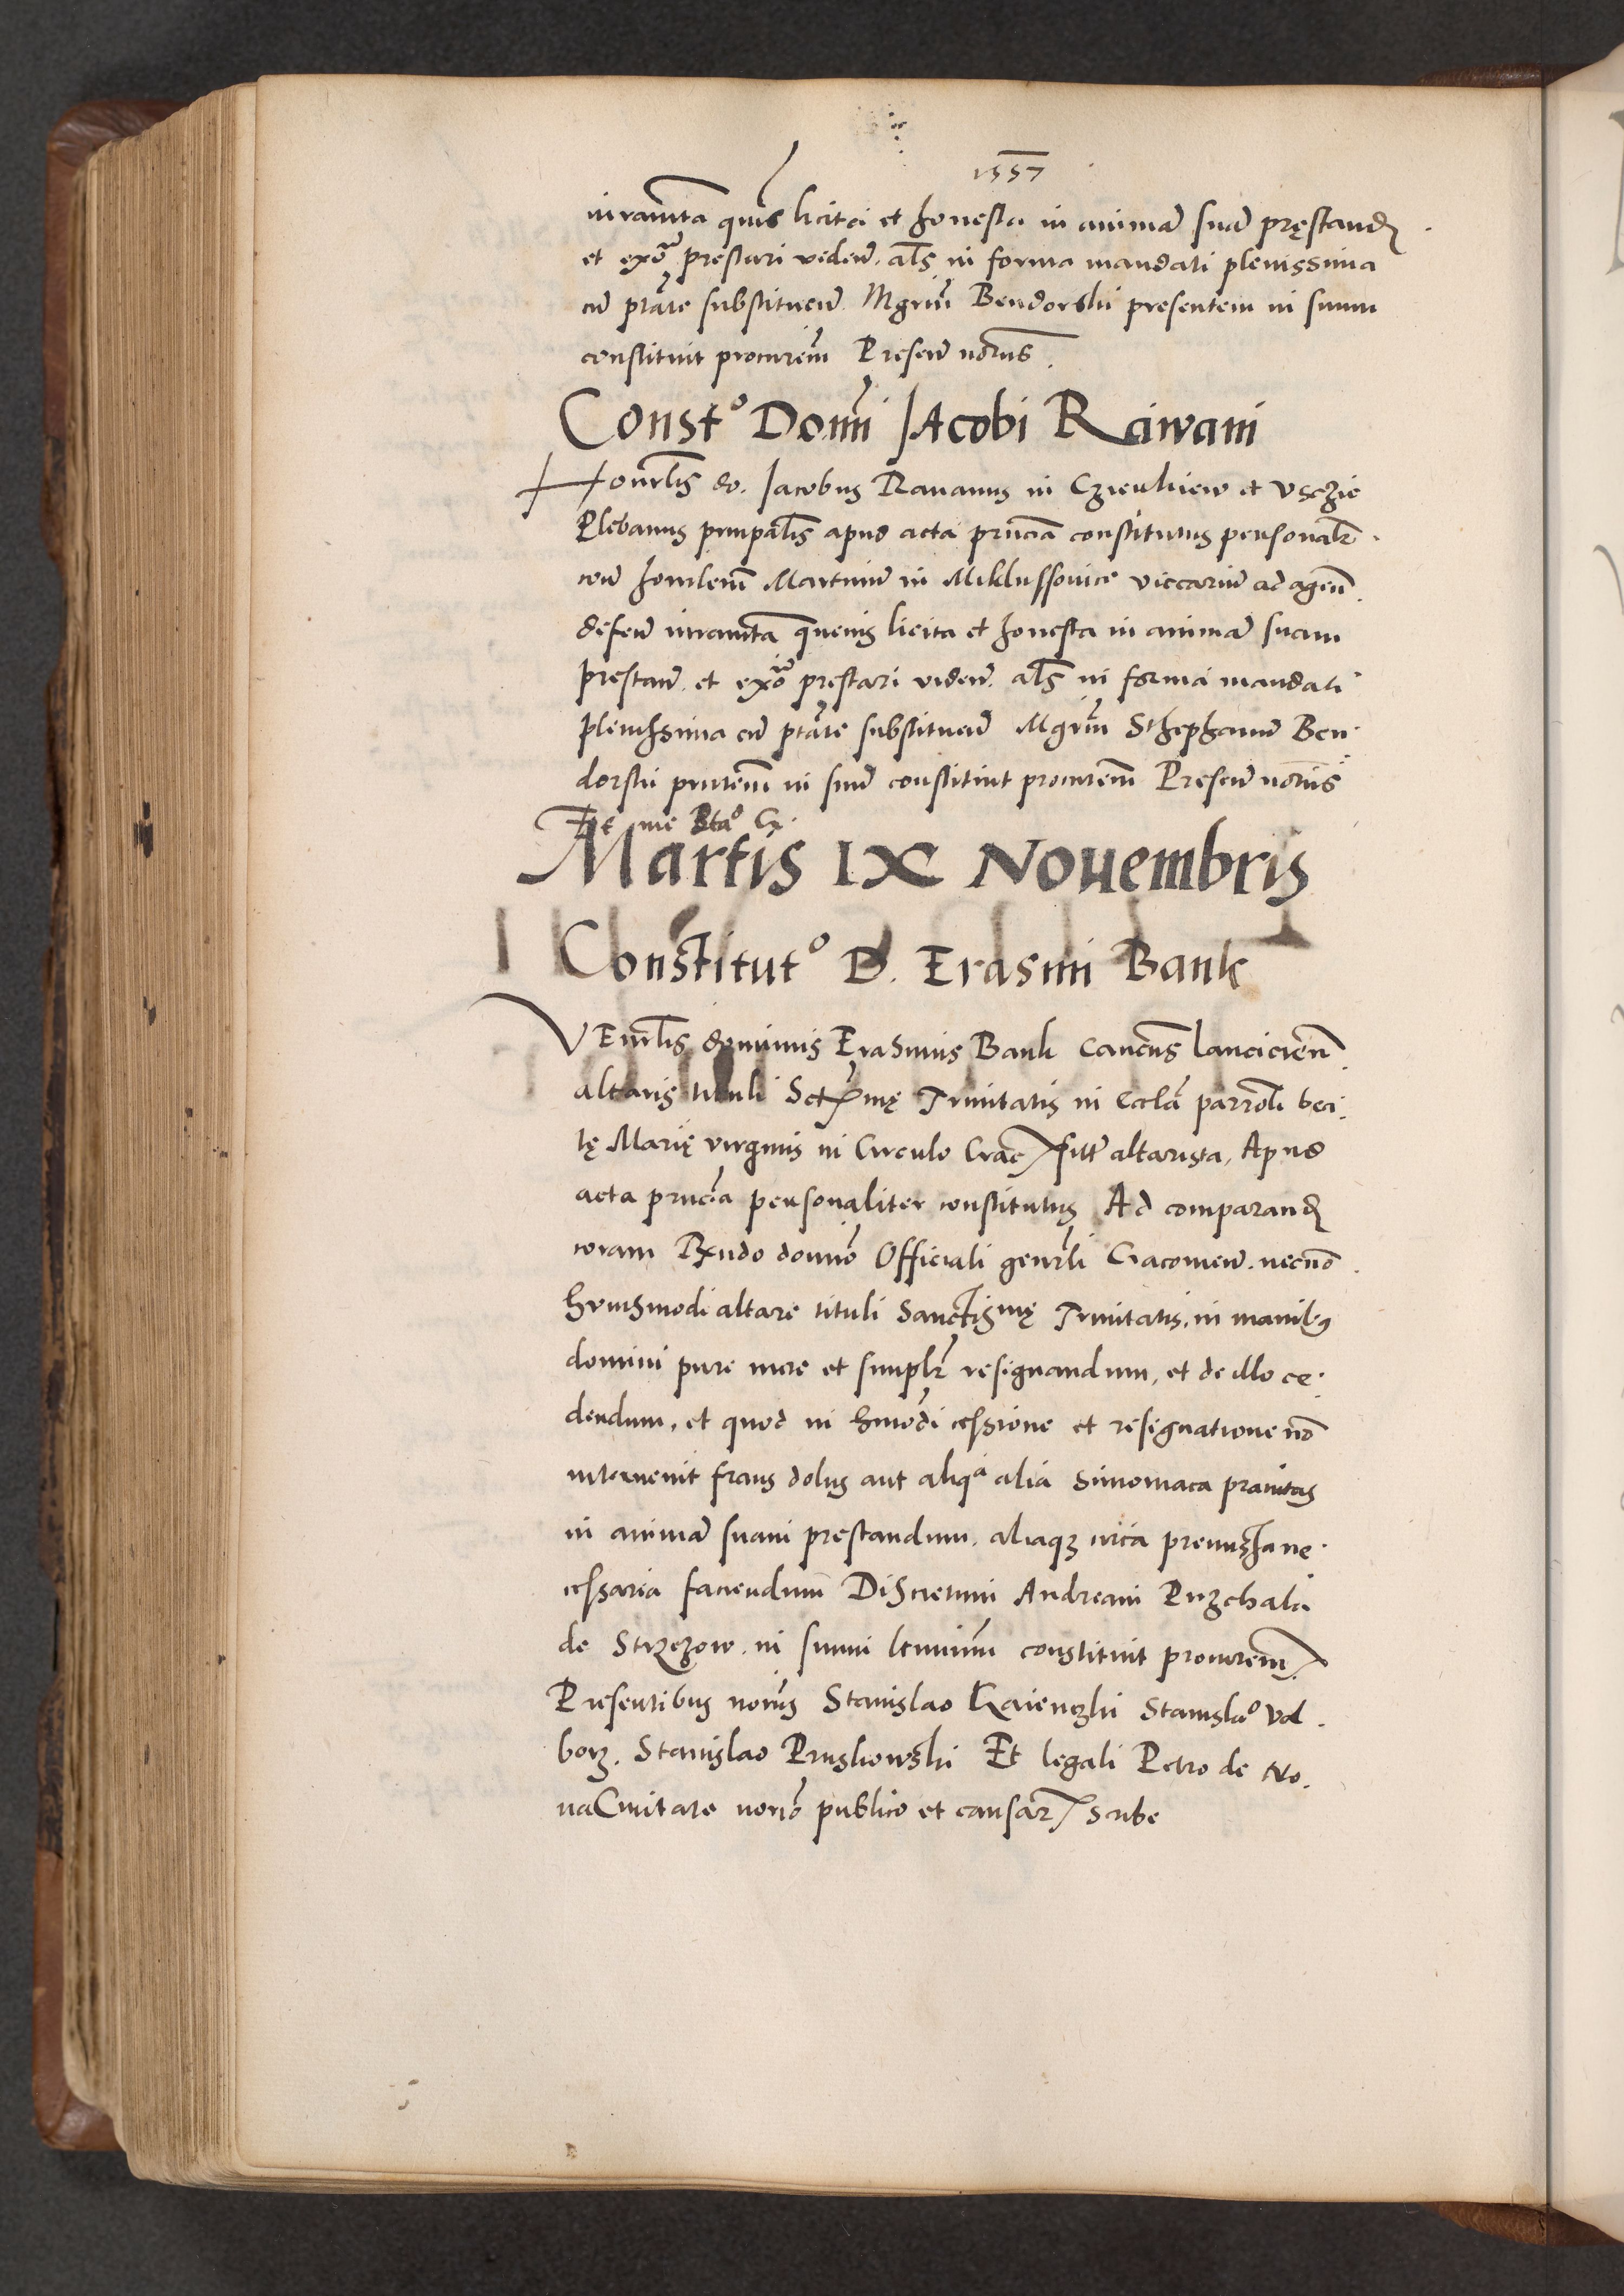 1557
iuramta quęuis licita et honesta in animā suā pręstand
et exōā prestari videñ. als in forma mandati plenissima
cū ptāte substituenđ. Mgrum Bendorski presentem in suum
constituit procurem̄ Preseñ notus.
Const° Domi Jacobi Rawani
Honrlis do. Jacobus Rauanus in Czreukiew et Vsczie
Plebanus prinpalis apud acta prncia constitutus personalr.
ceu honrlem Martinū in Miklussouice viccariū ad ageñ.
defeñ iuramta queuis licita et honesta in animā suam
prestañ. et exōā prestari videñ. als in forma mandati
plenissima cū ptāte substitueñ Mgrm Sthephanū Ben.
dorski prntem in suū constituit procurem Preseñ notus
Et me Btā° Cz.
Martis IX Nouembris
Constitut° D. Erasmi Bank
VEnrlis dominus Erasmus Bank Canōcus lancicieñ.
altaris tituli Sctmę Trinitatis in Eccla parrōli bea.
tę Marię virginis in Circulo Crac sitt altarista, Apud
acta prncia personaliter constitutus Ad comparand
coram Rxndo domīo Officiali genrli Cracouieñ. necnō.
huiusmodi altare tituli Sanctismę Trinitatis, in manibꝰ
domini pure mere et simplr resignandum, et de illo ce.
dendum, et quod in hmodi cessione et resignatione nō
interuenit fraus dolus aut aliqᵃ alia Simoniaca prauitas
in animā suam prestandum. aliaqꝫ circa premissa ne.
cessaria faciendum Discretum Andream Puzchala
de Strzezow. in suum ltimum constituit procurem
Presentibus notus Stanislao Kaienczki Stanisla° Vol.
borz. Stanislao Pruskowski Et legali Petro de No.
uaCiuitate notrio publico et causar scribe